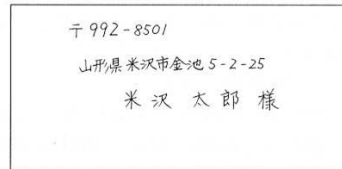 〒992-8501
山形県米沢市金池5-2-25
米沢 太郎 様